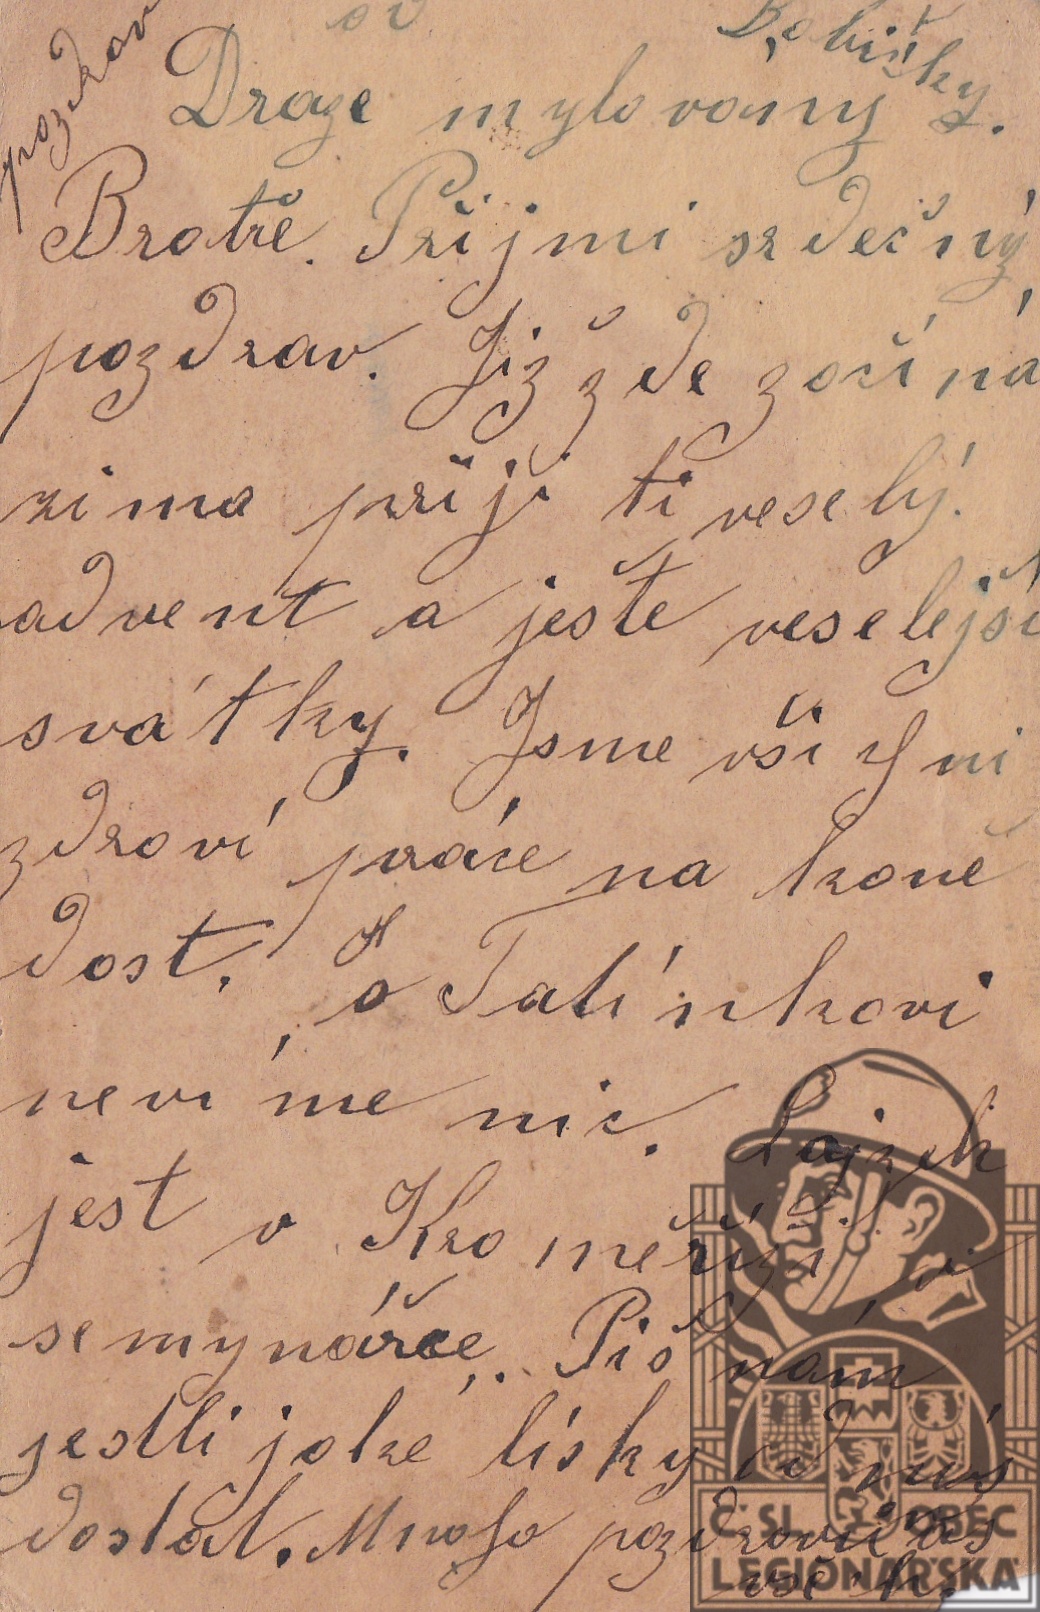 pozdrav
od Bobišky
Draze mylovaný L.
Bratře. Přijmi srdečný
pozdrav. Již zde začíná
zima přiji ti veselý.
advent a ješte veselejší
svátky. Jsme vši chni
zdroví práce na koně
dost. o Tatínkovi
nevíme nic. Lojzek
jest v Kroměříži v
semynářce. Piš nám
jestli jske lísky od nás
dostal. Mnoho pozdrovů os
všech.
ČSL. OBEC
LEGIONÁŘSKÁ